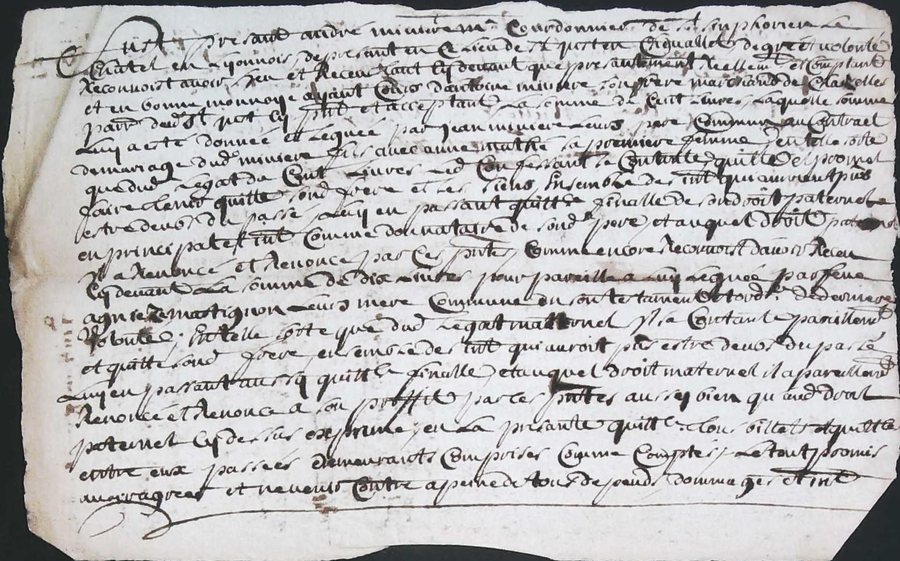 fust presant andre miniere me Courdonnier de st simphorien le
Chatel en lyonnois de presant en ce lieu de st just en lequel de gre et volonte
Reconnoist avoir heu et Receu tant cy devant que presantement Reellemt et Comptant
et en bonne monnoye ayant Cours danthoine miniere son frere marchand de
parr dudt st just cy prnt et acceptant La somme de Cent Livres Laquelle somme
Luy a este donnée et Leguée par jean miniere Leurs pere Commun au Contract
de mariage dud miniere fils avec anne sa premiere femme, en telle sorte
que dud Legat de Cent Livres Led Confessant se Contante quitte et promet
faire tenir quitte sond frere et Les siens Ensemble des int qui auroient peus
estre deubs du passe Luy en passant quittce finalle de son droit paternel
en principal et int Comme donnataire de sond pere et auquel droit paternel
Il a Renoncé et Renonce par Ces pntes, Comme encore Reconnoist davoir Receu
Cy devant La somme de dix Livres pour pareille a Luy Leguée par feue
agnies mattignon Leurs mere Commune en son testament et ord. de derniere
volonte, En telle sorte que dud Legat matternel Il se Contante pareillemt
et quitte sond frere ensemble des int qui auroit peu estre deubs du passé
Luy en passant aussy quittce finalle, et auquel droit maternel il a pareillemt
Renoncé et Renonce a son proffit par Ces pntes aussy bien quaud droit
paternel Cy dessus exprimé, en La presante quittce tous billets et quittces
entre eux passées demeurants Comprises Comme Compté, Le tout promis
avoir agree et ne venir Contre a peine de tous despends dommages et int